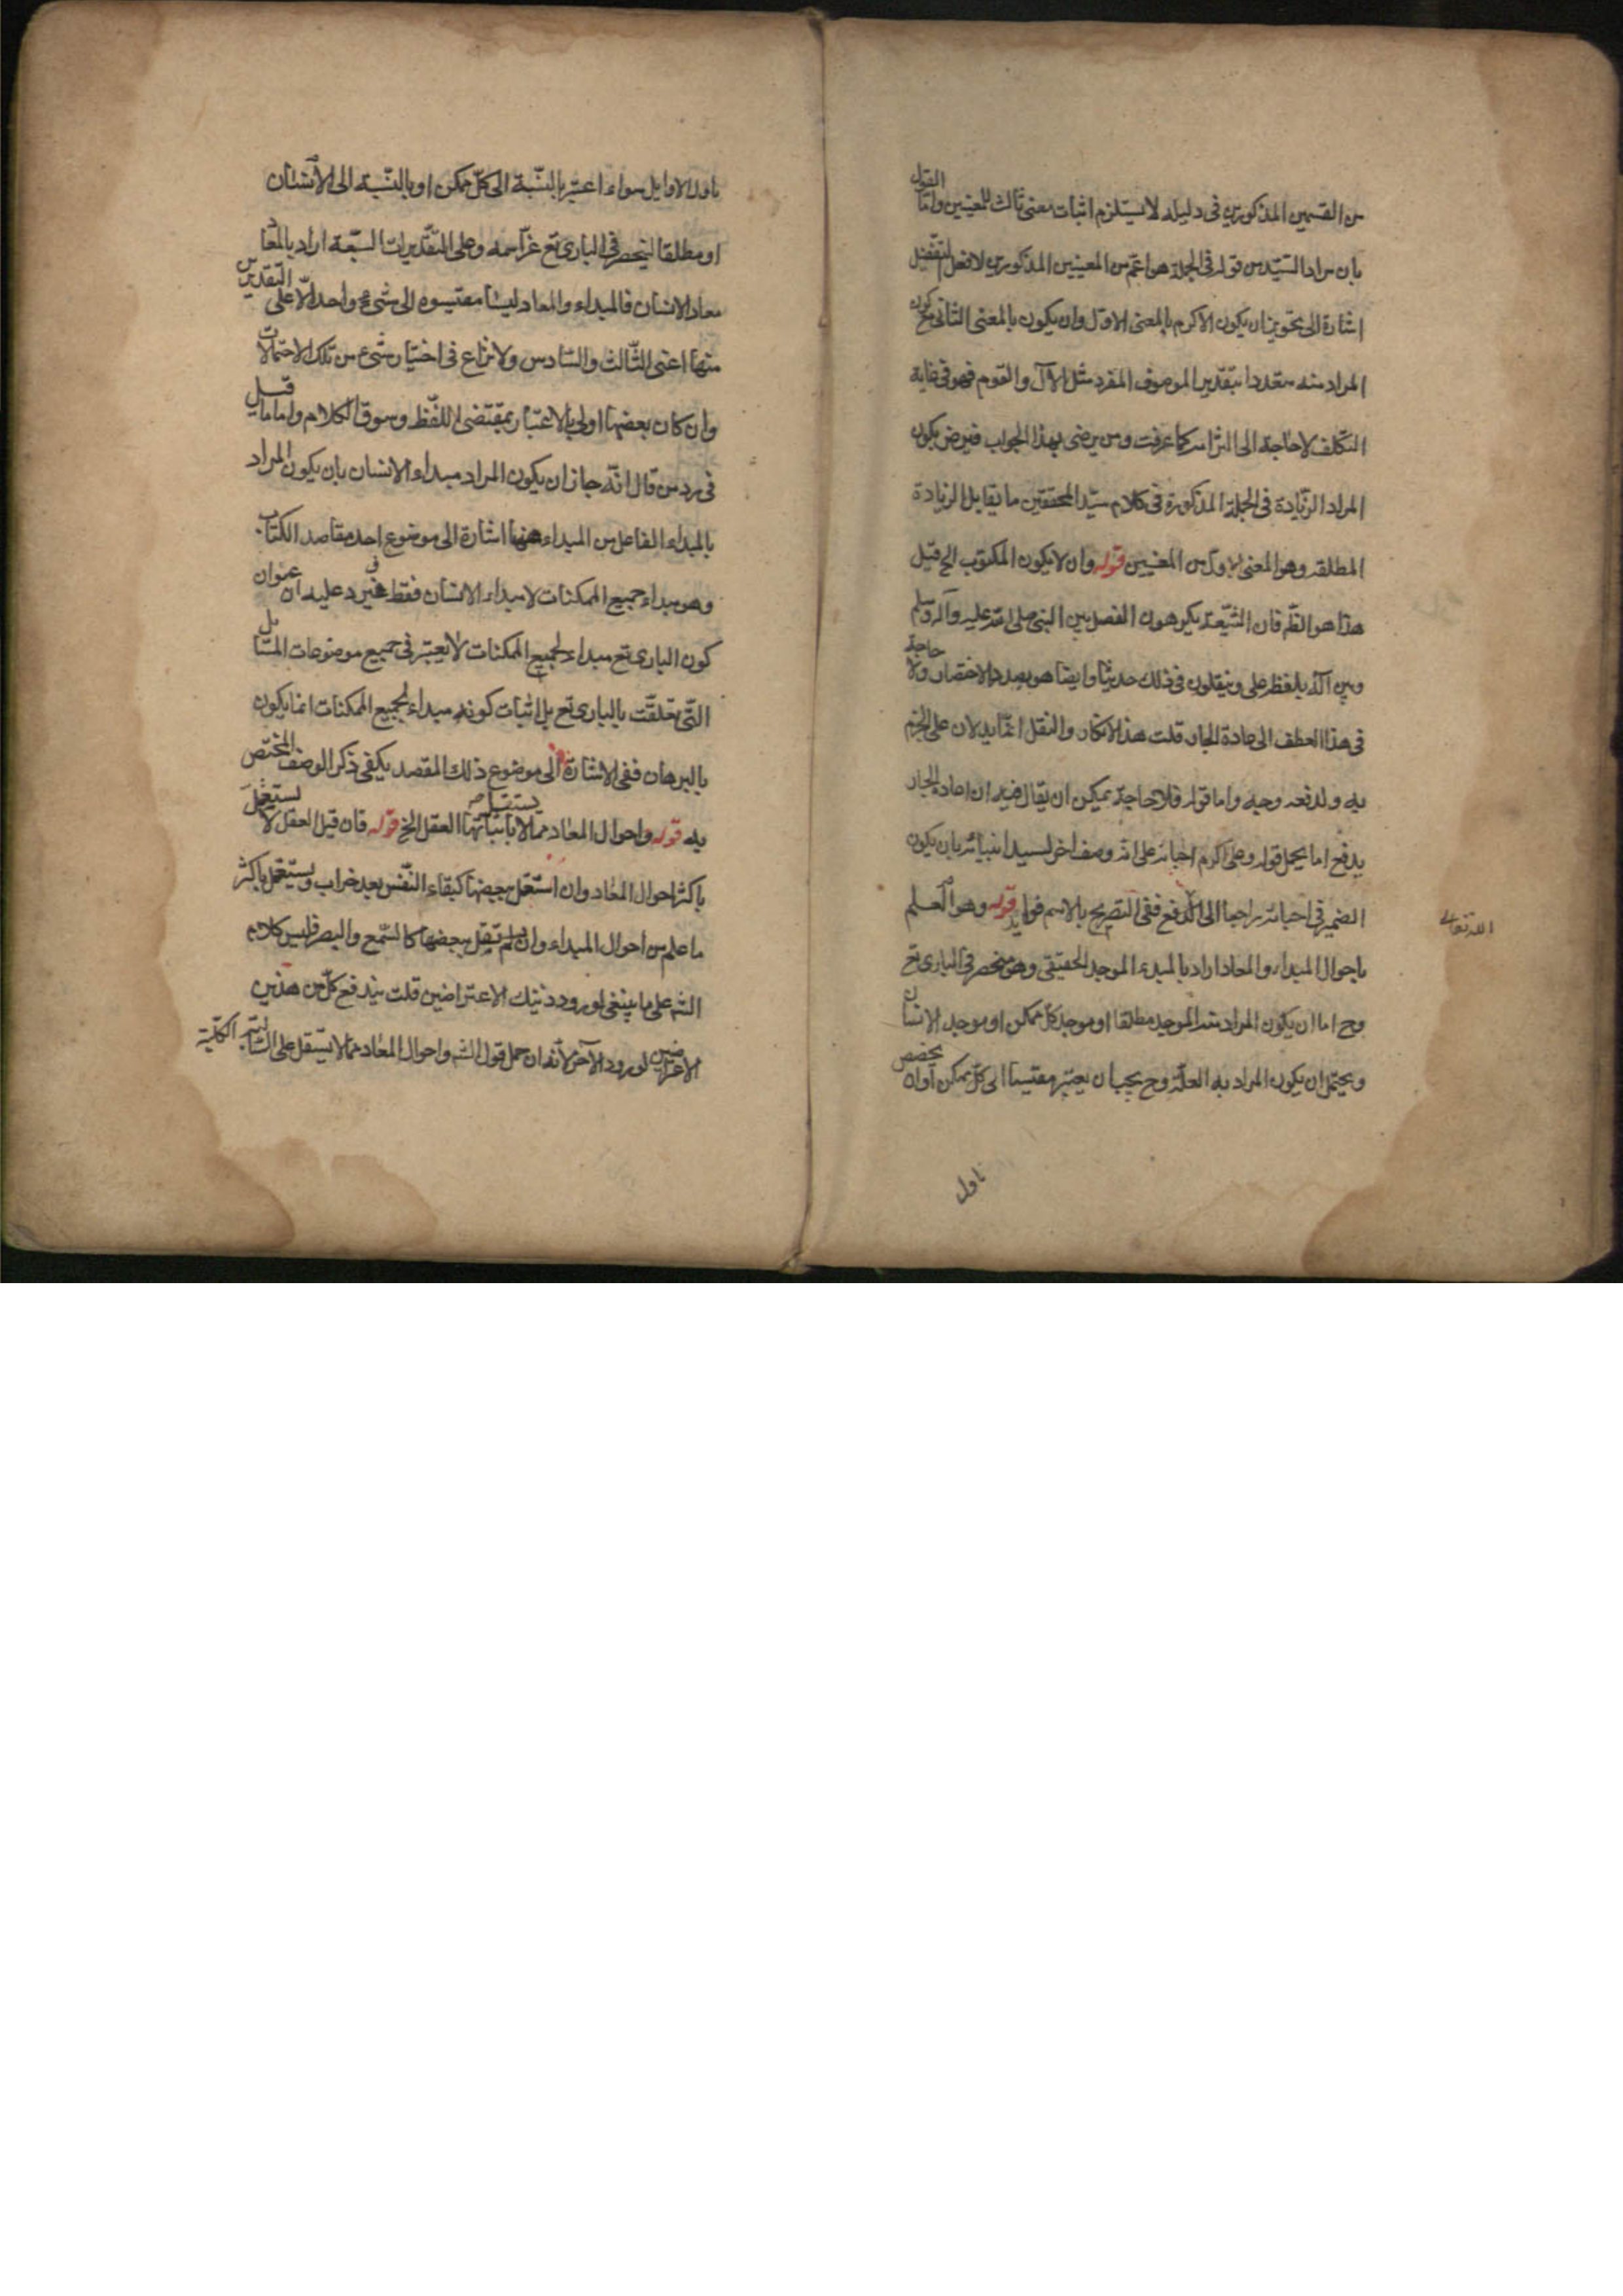 من القسمين المذكورين في دليله لا يستلزم اثبات معنى ثالث للمعنيين واما القول
بان مراد السيد من قوله في الجملة هو اعم من المعنيين المذكورين لافعل التفضيل
اشارة الى تجويز ان يكون الاكرم بالمعنى الاول وان يكون بالمعنى الثاني مع كون
المراد منه متعددا بتقدير الموصوف المفرد مثل الآل والقوم فهو في غاية
التكلف لا حاجة الى التزامه كما عرفت ومن يرضى بهذا الجواب فيرضى بكون
المراد الزيادة في الجملة المذكورة في كلام سيد المحققين ما يقابل الزيادة
المطلقة وهو المعنى الاول من المعنيين قوله وان لا يكون المكتوب الخ قيل
هذا هو الظ فان الشيعة يكرهون الفصل بين النبي صلى الله عليه وآله وسلم
وبين آله بلفظ على وينقلون في ذلك حديثا وايضا هو بصدد الاختصار ولا حاجة
في هذا العطف الى اعادة الجار قلت هذا الانكار والنقل انما يدلان على الجزم
به ولدفعه وجيه واما قوله فلا حاجة يمكن ان يقال فيه ان اعادة الجار
يدفع اما يحمل قوله وعلى اكرم احبائه على انه وصف اخر لسيد انبيائه بان يكون
الضمير في احبائه راجعا الى الله تعالى لا دفع ففي التصريح بالاسم فوايد قوله وهو العلم
باحوال المبداء والمعاد اراد بالمبدء الموجد الحقيقي وهو منحصر في الباري تع
وح اما ان يكون المراد منه الموجد مطلقا او موجد كل ممكن او موجد الانسان
ويحتمل ان يكون المراد به العلة وح يجب ان يعتبر مقتيسا الى كل ممكن او ان يخصص
باول
باول الاوايل سواء اعتبر بالنسبة الى كل ممكن او بالنسبة الى الانسان
او مطلقا لينحصر في الباري تع عز اسمه وعلى التقديرات السبعة اراد بالمعاد
معاد الانسان فالمبداء والمعاد ليسا مقتيسوه الى شيء واحد الا على التقديرين
منها اعني الثالث والسادس ولا نزاع في اختيار شيء من تلك الاحتمالات
وان كان بعضها اولى بالاعتبار بمقتضى اللفظ وسوق الكلام واما ما قيل
في رد من قال انه جاز ان يكون المراد مبداء الانسان بان يكون المراد
بالمبداء الفاعل من المبداء ههنا اشارة الى موضوع احد مقاصد الكتاب
وهو مبداء جميع الممكنات لا مبداء الانسان فقط فيرد عليه ان عنوان
كون الباري تع مبداء لجميع الممكنات لا يعتبر في جميع موضوعات المسائل
التي تعلقت بالباري تع بل اثبات كونه مبداء لجميع الممكنات انما يكون
بالبرهان ففي الاشارة الى موضوع ذلك المقصد يكفي ذكر الوصف المختص
به قوله واحوال المعاد مما لا يستقل باثباتها العقل الخ قوله فان قيل العقل لا يستقل
باكثر احوال المعاد وان استقل ببعضها كبقاء النفس بعد خراب ويستقل باكثر
ما علم من احوال المبداء وان لم يستقل ببعضها كالسمع والبصر فليس كلام
الشه على ما ينبغي لورود ذينك الاعتراضين قلت يندفع كل من هذين
الاعتراضين لورود الآخر لانه ان حمل قول الشه واحوال المعاد مما لا يستقل على السالبة الكلية